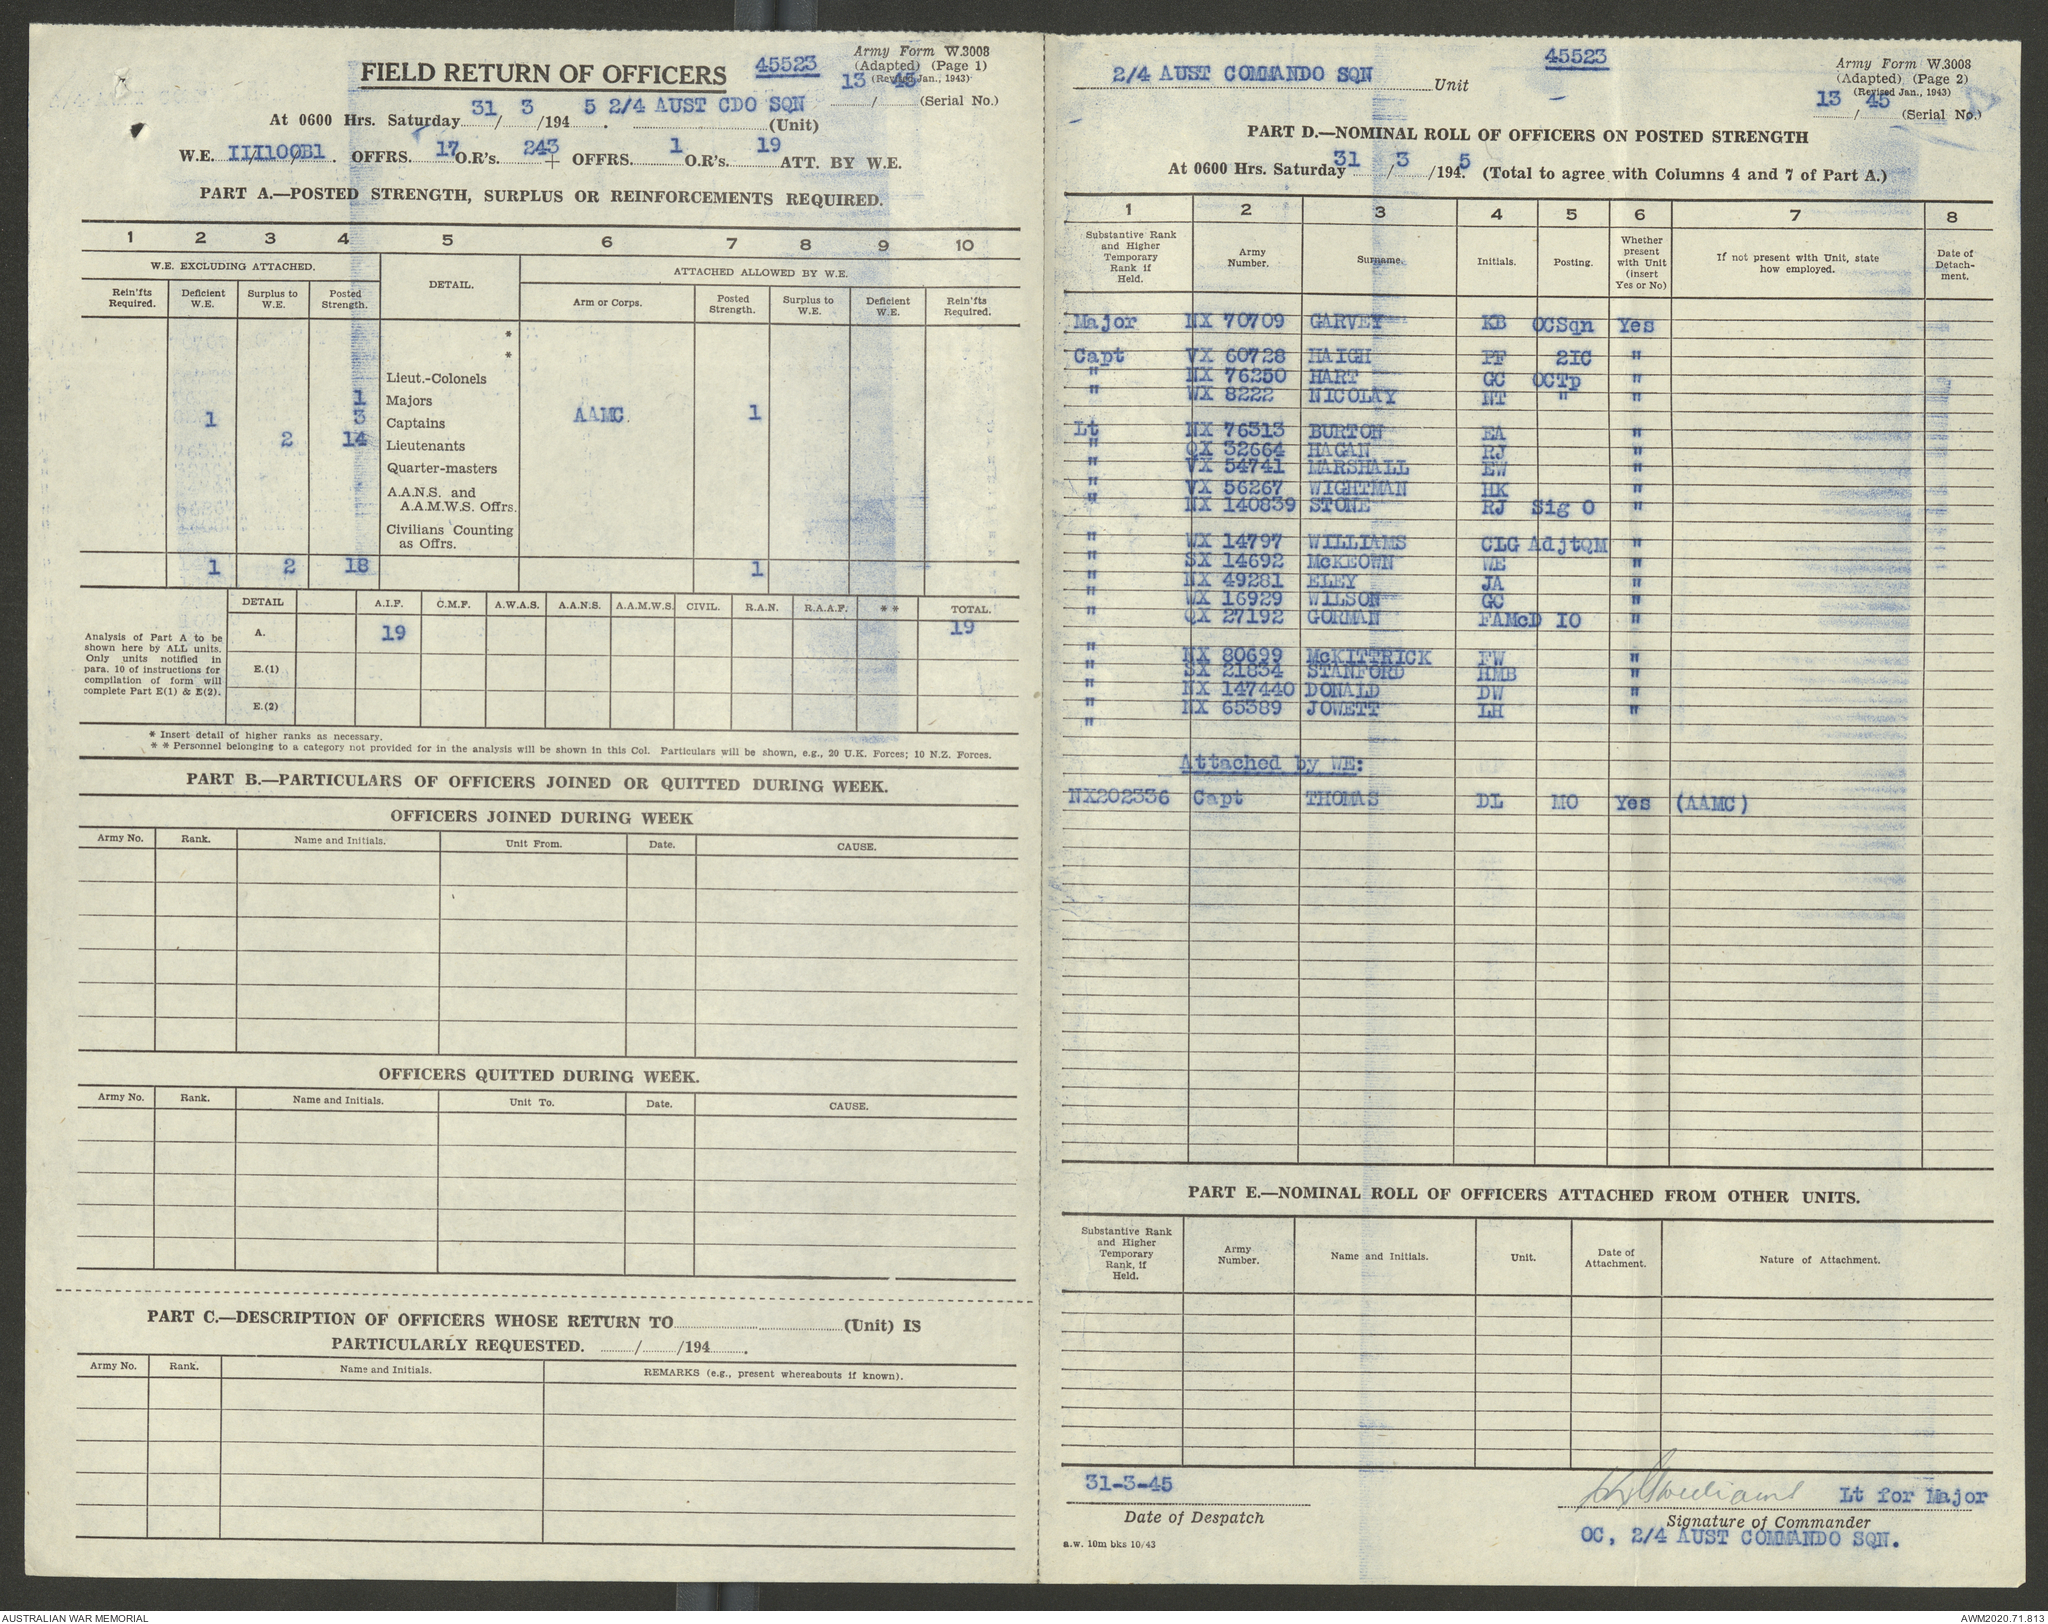 Army Form W.3008
(Adapted) (Page 1)
(Revised Jan., 1943)
FIELD RETURN OF OFFICERS 45523
13 / 45 (Serial No.)
At 0600 Hrs. Saturday 31 / 3 /194 5. 2/4 AUST CDO SQN (Unit)
W.E. III/100B1. OFFRS. 17 O.R's. 243 + OFFRS. 1 O.R's. 19 ATT. BY W.E.
PART A.—POSTED STRENGTH, SURPLUS OR REINFORCEMENTS REQUIRED.
1 2 3 4 5 6 7 8 9 10
W.E. EXCLUDING ATTACHED. DETAIL. ATTACHED ALLOWED BY W.E.
Rein'fts Required. Deficient W.E. Surplus to W.E. Posted Strength. Arm or Corps. Posted Strength. Surplus to W.E. Deficient W.E. Rein'fts Required.
*
*
Lieut.-Colonels
1 Majors
1 3 Captains AAMC 1
2 14 Lieutenants
Quarter-masters
A.A.N.S. and
A.A.M.W.S. Offrs.
Civilians Counting
as Offrs.
1 2 18 1
DETAIL A.I.F. C.M.F. A.W.A.S. A.A.N.S. A.A.M.W.S. CIVIL. R.A.N. R.A.A.F. ** TOTAL.
Analysis of Part A to be
shown here by ALL units.
Only units notified in
para. 10 of instructions for
compilation of form will
complete Part E(1) & E(2).
A. 19 19
E.(1)
E.(2)
* Insert detail of higher ranks as necessary.
* * Personnel belonging to a category not provided for in the analysis will be shown in this Col. Particulars will be shown, e.g., 20 U.K. Forces; 10 N.Z. Forces.
PART B.—PARTICULARS OF OFFICERS JOINED OR QUITTED DURING WEEK.
OFFICERS JOINED DURING WEEK
Army No. Rank. Name and Initials. Unit From. Date. CAUSE.
OFFICERS QUITTED DURING WEEK.
Army No. Rank. Name and Initials. Unit To. Date. CAUSE.
PART C.—DESCRIPTION OF OFFICERS WHOSE RETURN TO (Unit) IS
PARTICULARLY REQUESTED. / /194 .
Army No. Rank. Name and Initials. REMARKS (e.g., present whereabouts if known).
2/4 AUST COMMANDO SQN Unit 45523
Army Form W.3008
(Adapted) (Page 2)
(Revised Jan., 1943)
13 / 45 (Serial No.)
PART D.—NOMINAL ROLL OF OFFICERS ON POSTED STRENGTH
At 0600 Hrs. Saturday 31 / 3 /194 5. (Total to agree with Columns 4 and 7 of Part A.)
1 2 3 4 5 6 7 8
Substantive Rank and Higher Temporary Rank if Held. Army Number. Surname. Initials. Posting. Whether present with Unit (insert Yes or No) If not present with Unit, state how employed. Date of Detachment.
Major NX 70709 GARVEY KB OCSqn Yes
Capt VX 60728 HAIGH PF 2IC "
" NX 76250 HART GC OCTp "
" WX 8222 NICOLAY NT " "
Lt NX 76313 BURTON EA "
" QX 32664 HAGAN RJ "
" VX 54741 MARSHALL EW "
" VX 56267 WIGHTMAN HK "
" NX 140839 STONE RJ Sig O "
" WX 14797 WILLIAMS CLG AdjtQM "
" SX 14692 McKEOWN WE "
" NX 49281 ELEY JA "
" WX 16929 WILSON GC "
" QX 27192 GORMAN FAMcD IO "
" NX 80699 McKITTRICK FW "
" SX 21834 STANFORD HMB "
" NX 147440 DONALD DW "
" NX 65389 JOWETT LH "
"
Attached by WE:
NX202336 Capt THOMAS DL MO Yes (AAMC)
PART E.—NOMINAL ROLL OF OFFICERS ATTACHED FROM OTHER UNITS.
Substantive Rank and Higher Temporary Rank, if Held. Army Number. Name and Initials. Unit. Date of Attachment. Nature of Attachment.
31-3-45
Date of Despatch
Lt for Major
Signature of Commander
OC, 2/4 AUST COMMANDO SQN.
a.w. 10m bks 10/43
AUSTRALIAN WAR MEMORIAL
AWM2020.71.813